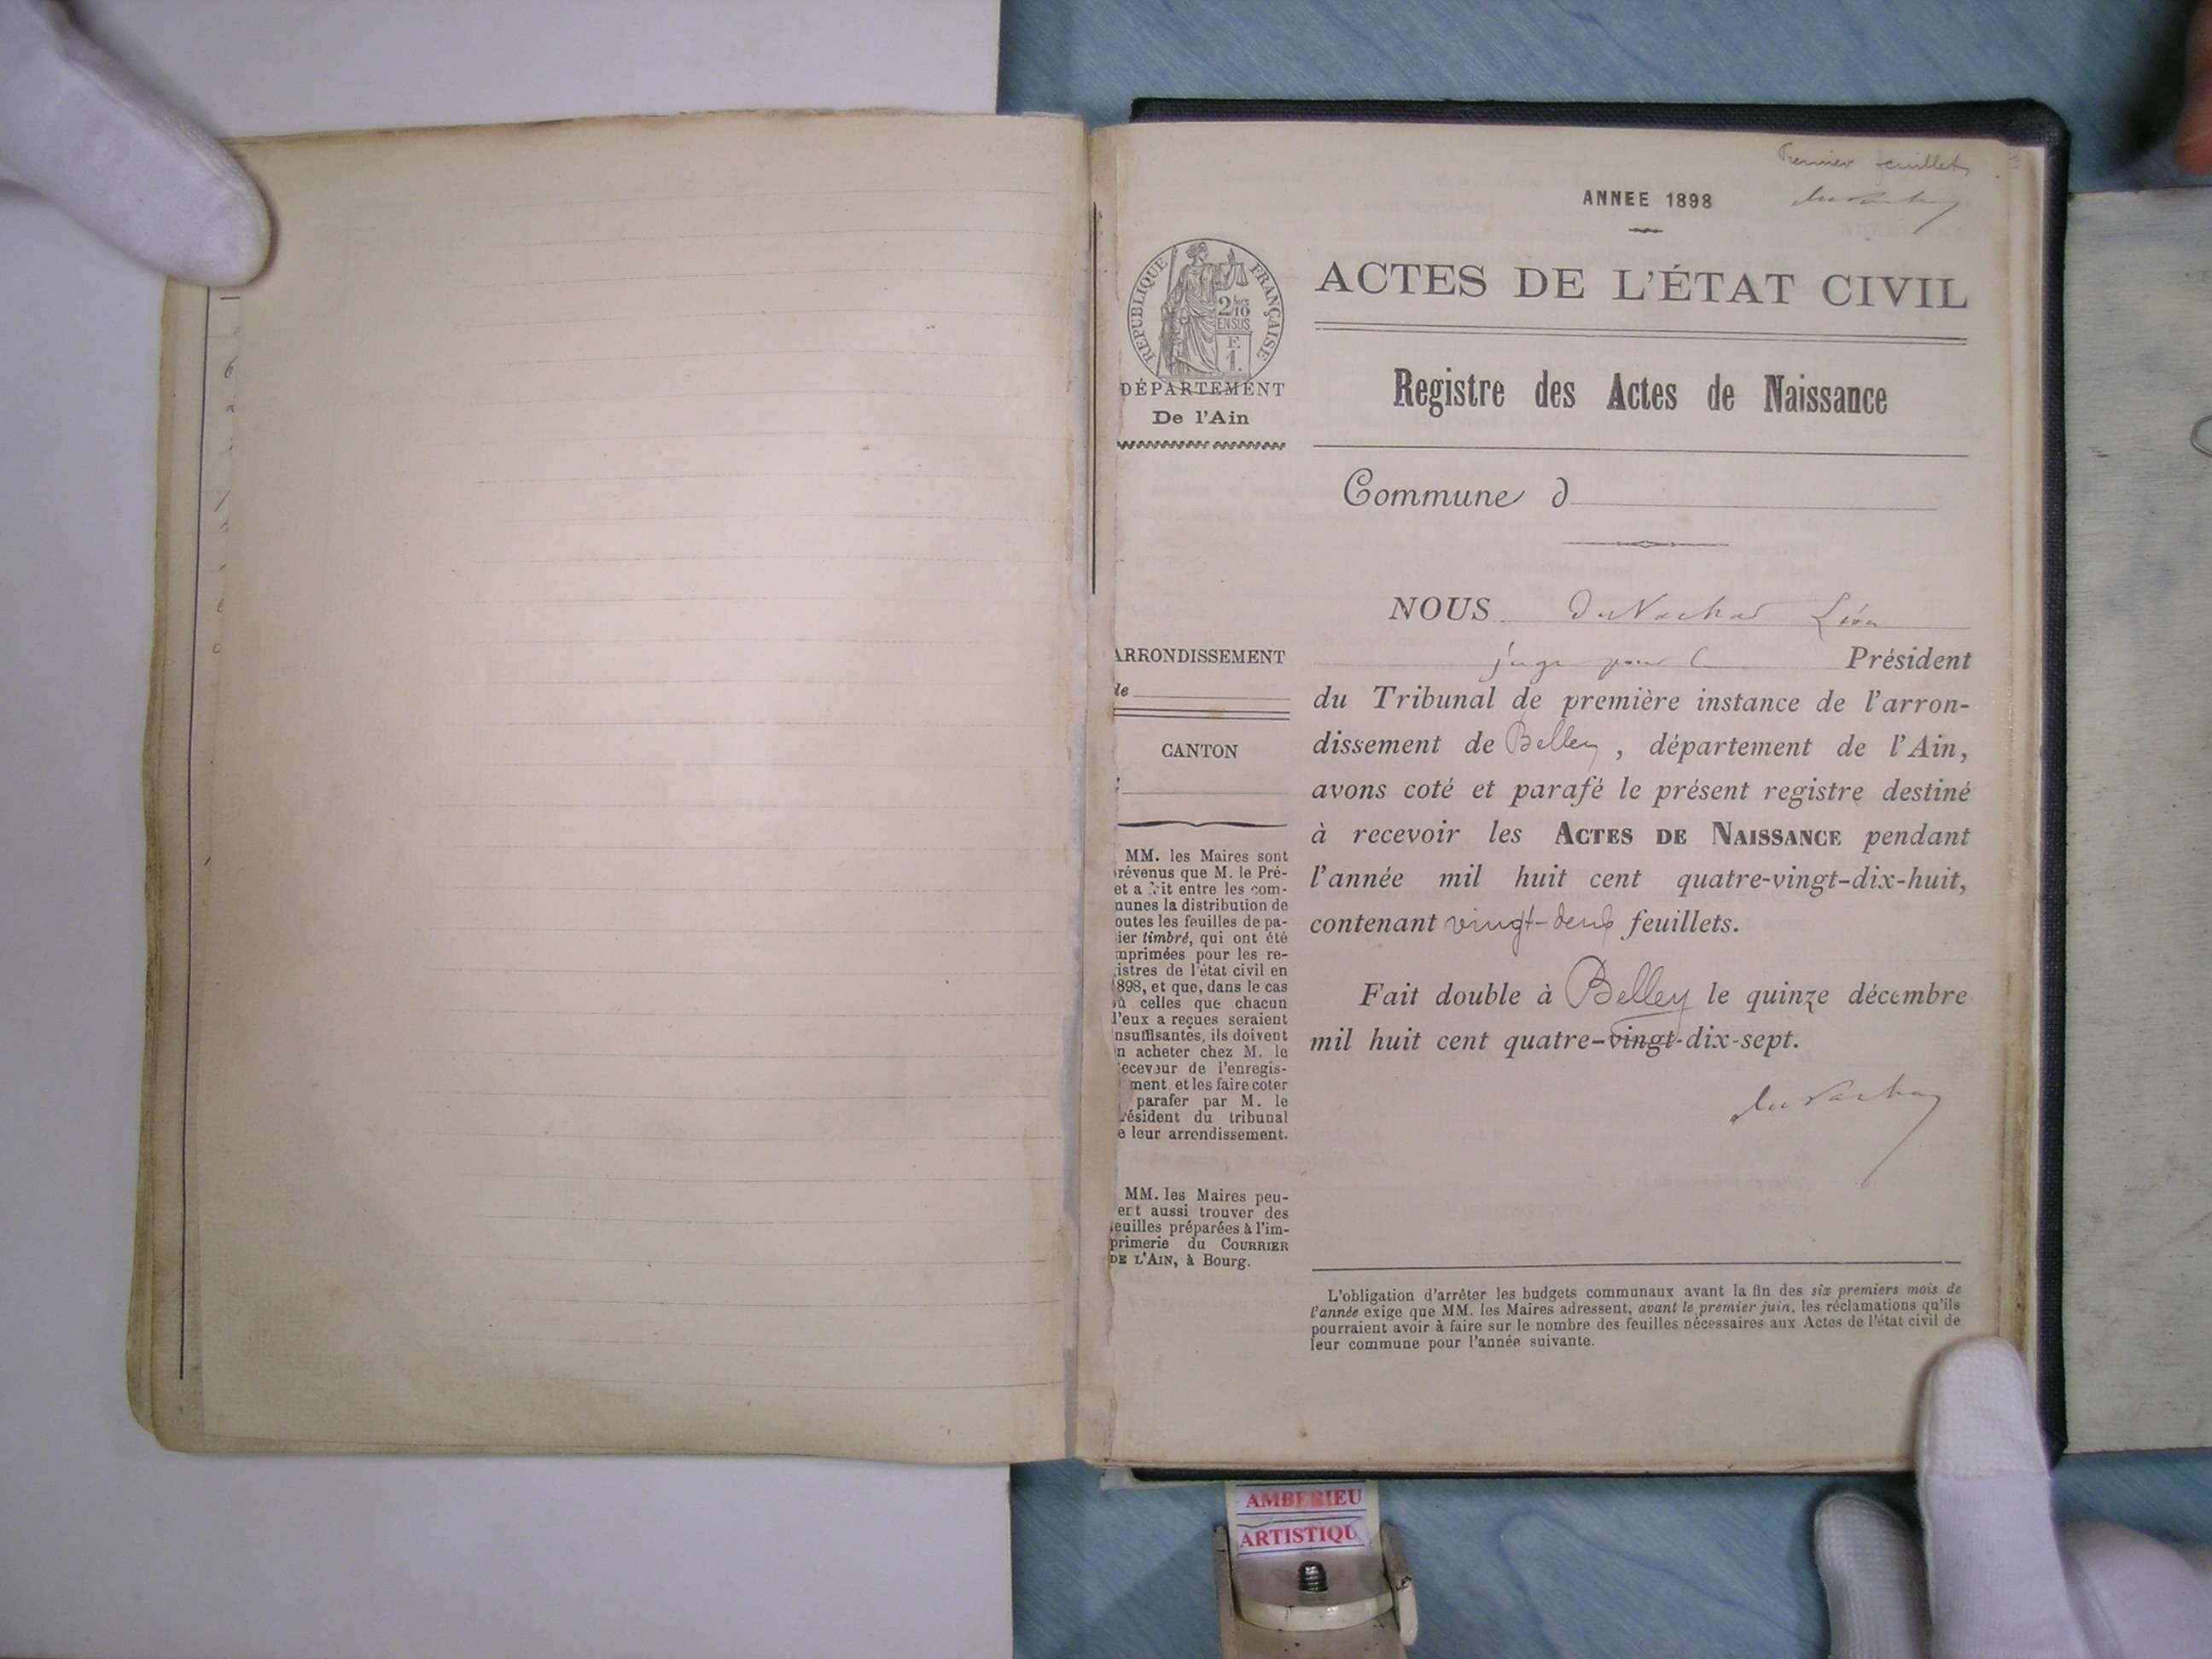 Premier feuillet
ANNEE 1898
ACTES DE L'ÉTAT CIVIL
Registre des Actes de Naissance
Commune d
NOUS Léon
juge pour le Président
du Tribunal de première instance de l'arron-
dissement de Belley, département de l'Ain,
avons coté et parafé le présent registre destiné
à recevoir les ACTES DE NAISSANCE pendant
l'année mil huit cent quatre-vingt-dix-huit,
contenant vingt-deux feuillets.
Fait double à Belley le quinze décembre
mil huit cent quatre-vingt-dix-sept.
L'obligation d'arrêter les budgets communaux avant la fin des six premiers mois de
l'année exige que MM. les Maires adressent, avant le premier juin, les réclamations qu'ils
pourraient avoir à faire sur le nombre des feuilles nécessaires aux Actes de l'état civil de
leur commune pour l'année suivante.
RÉPUBLIQUE FRANÇAISE
2/10
EN SUS
F.
1.
DÉPARTEMENT
De l'Ain
ARRONDISSEMENT
de
CANTON
MM. les Maires sont
révenus que M. le Pré-
et a fait entre les com-
munes la distribution de
outes les feuilles de pa-
ier timbré, qui ont été
mprimées pour les re-
istres de l'état civil en
1898, et que, dans le cas
où celles que chacun
d'eux a reçues seraient
nsuffisantes, ils doivent
n acheter chez M. le
eceveur de l'enregis-
ment et les faire coter
parafer par M. le
résident du tribunal
e leur arrondissement.
MM. les Maires peu-
ent aussi trouver des
euilles préparées à l'im-
primerie du COURRIER
DE L'AIN, à Bourg.
AMBERIEU
ARTISTIQU